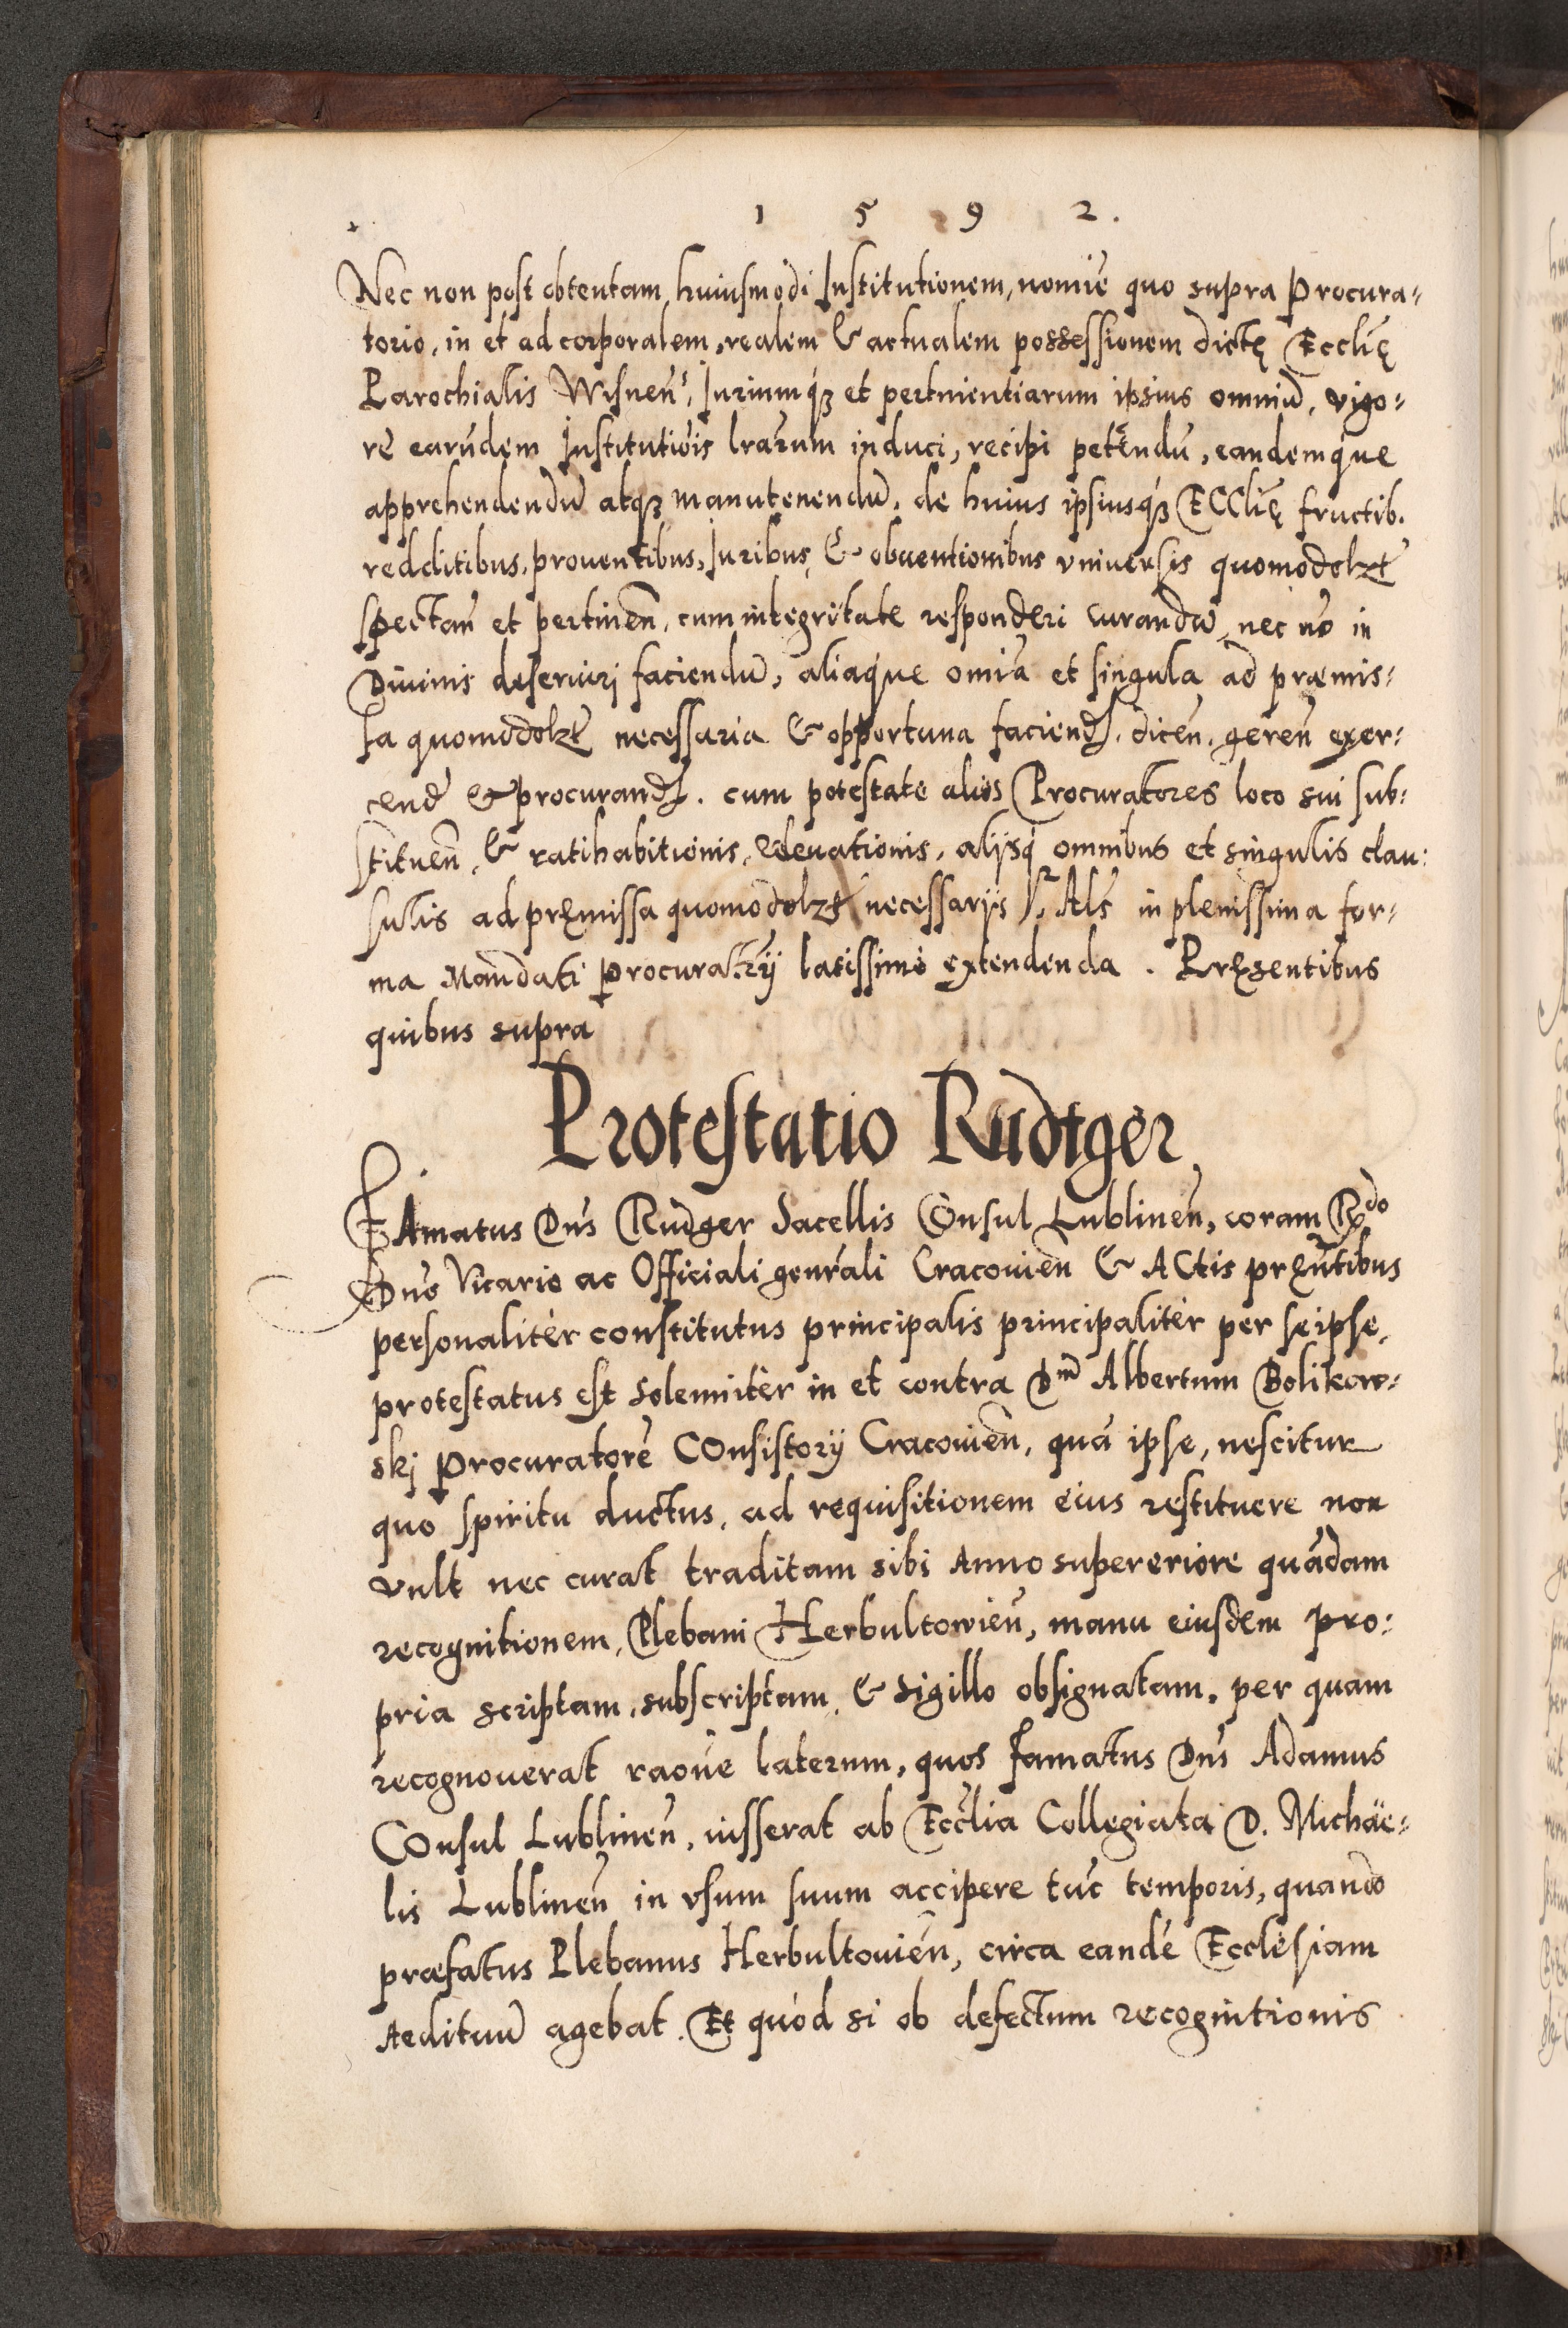 1 5 9 2.
Nec non post obtentam huiusmodi Institutionem, nomīe quo supra Procura=
torio, in et ad corporalem, realem & actualem possessionem dictę Ecclīę
Parochialis Wisnen̄, Iuriumq́ꝫ et pertinentiarum ipsius omniū, vigo=
re earūdem Institutiōis lrārum induci, recipi petendū, eandemque
apprehendendū atqꝫ manutenendū, de huius ipsiusq́ꝫ Ecclīę fructib.
redditibus, prouentibus, Iuribus, & obuentionibus vniuersis quomodolꝫt
spectan̄ et pertinen̄, cum integritate responderi curandū, nec nō in
Diuinis deseruirj faciendū, aliaque omīa et singula ad præmis=
sa quomodolꝫt necessaria & opportuna faciend, dicen̄, geren̄ exer=
cend & procurand. cum potestate alios Procuratores loco sui sub=
stituen̄, & ratihabitionis, releuationis, alijsq́ omnibus et singulis clau=
sulis ad pręmissa quomodolꝫt necessarijs, Als̄ in plenissima for=
ma Mandati procuratrij latissimè extendenda. Pręsentibus
quibus supra
Protestatio Rudiger
FAmatus Dn̄s Rudger Sacellis Consul Lublinen̄, coram Rdo
Dn̄o Vicario ac Officiali genrāli Cracouien̄ & ACtis pręn̄tibus
personalitèr constitutus principalis principalitèr per seipse,
protestatus est solemnitèr in et contra Dnm̄ Albertum Bolikow=
skj Procuratorē COnsistorij Cracouien̄, quā ipse, nescitur
quo spiritu ductus, ad requisitionem eius restituere non
vult nec curat traditam sibi Anno supereriore quādam
recognitionem, Plebani Herbultowien̄, manu eiusdem pro=
pria scriptam, subscriptam, & sigillo obsignatam, per quam
recognouerat raōne laterum, quos famatus Dn̄s Adamus
COnsul Lublinen̄, iusserat ab Ecclīa Collegiata D. Michäe=
lis Lublinen̄ in vsum suum accipere tūc temporis, quando
præfatus Plebanus Herbultouien̄, circa eandē Ecclesiam
Aedituū agebat. Et quòd si ob defectum recognitionis